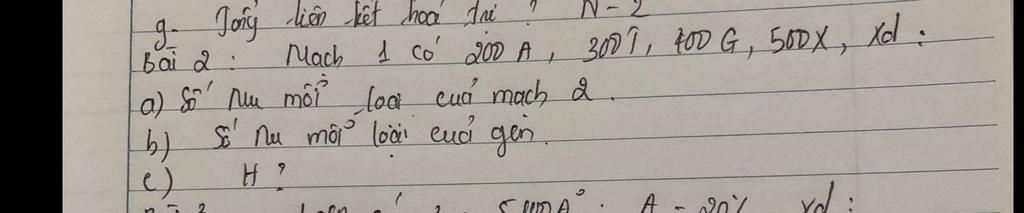 g. Tổng liên kết hoá trị ? N - 2
Bài 2 : Mạch 1 có 200 A, 300 T, 400 G, 500 X, xđ :
a) Số Nu mỗi loại của mạch 2.
b) Số Nu mỗi loại của gen.
c) H ?
A = 20% xđ :